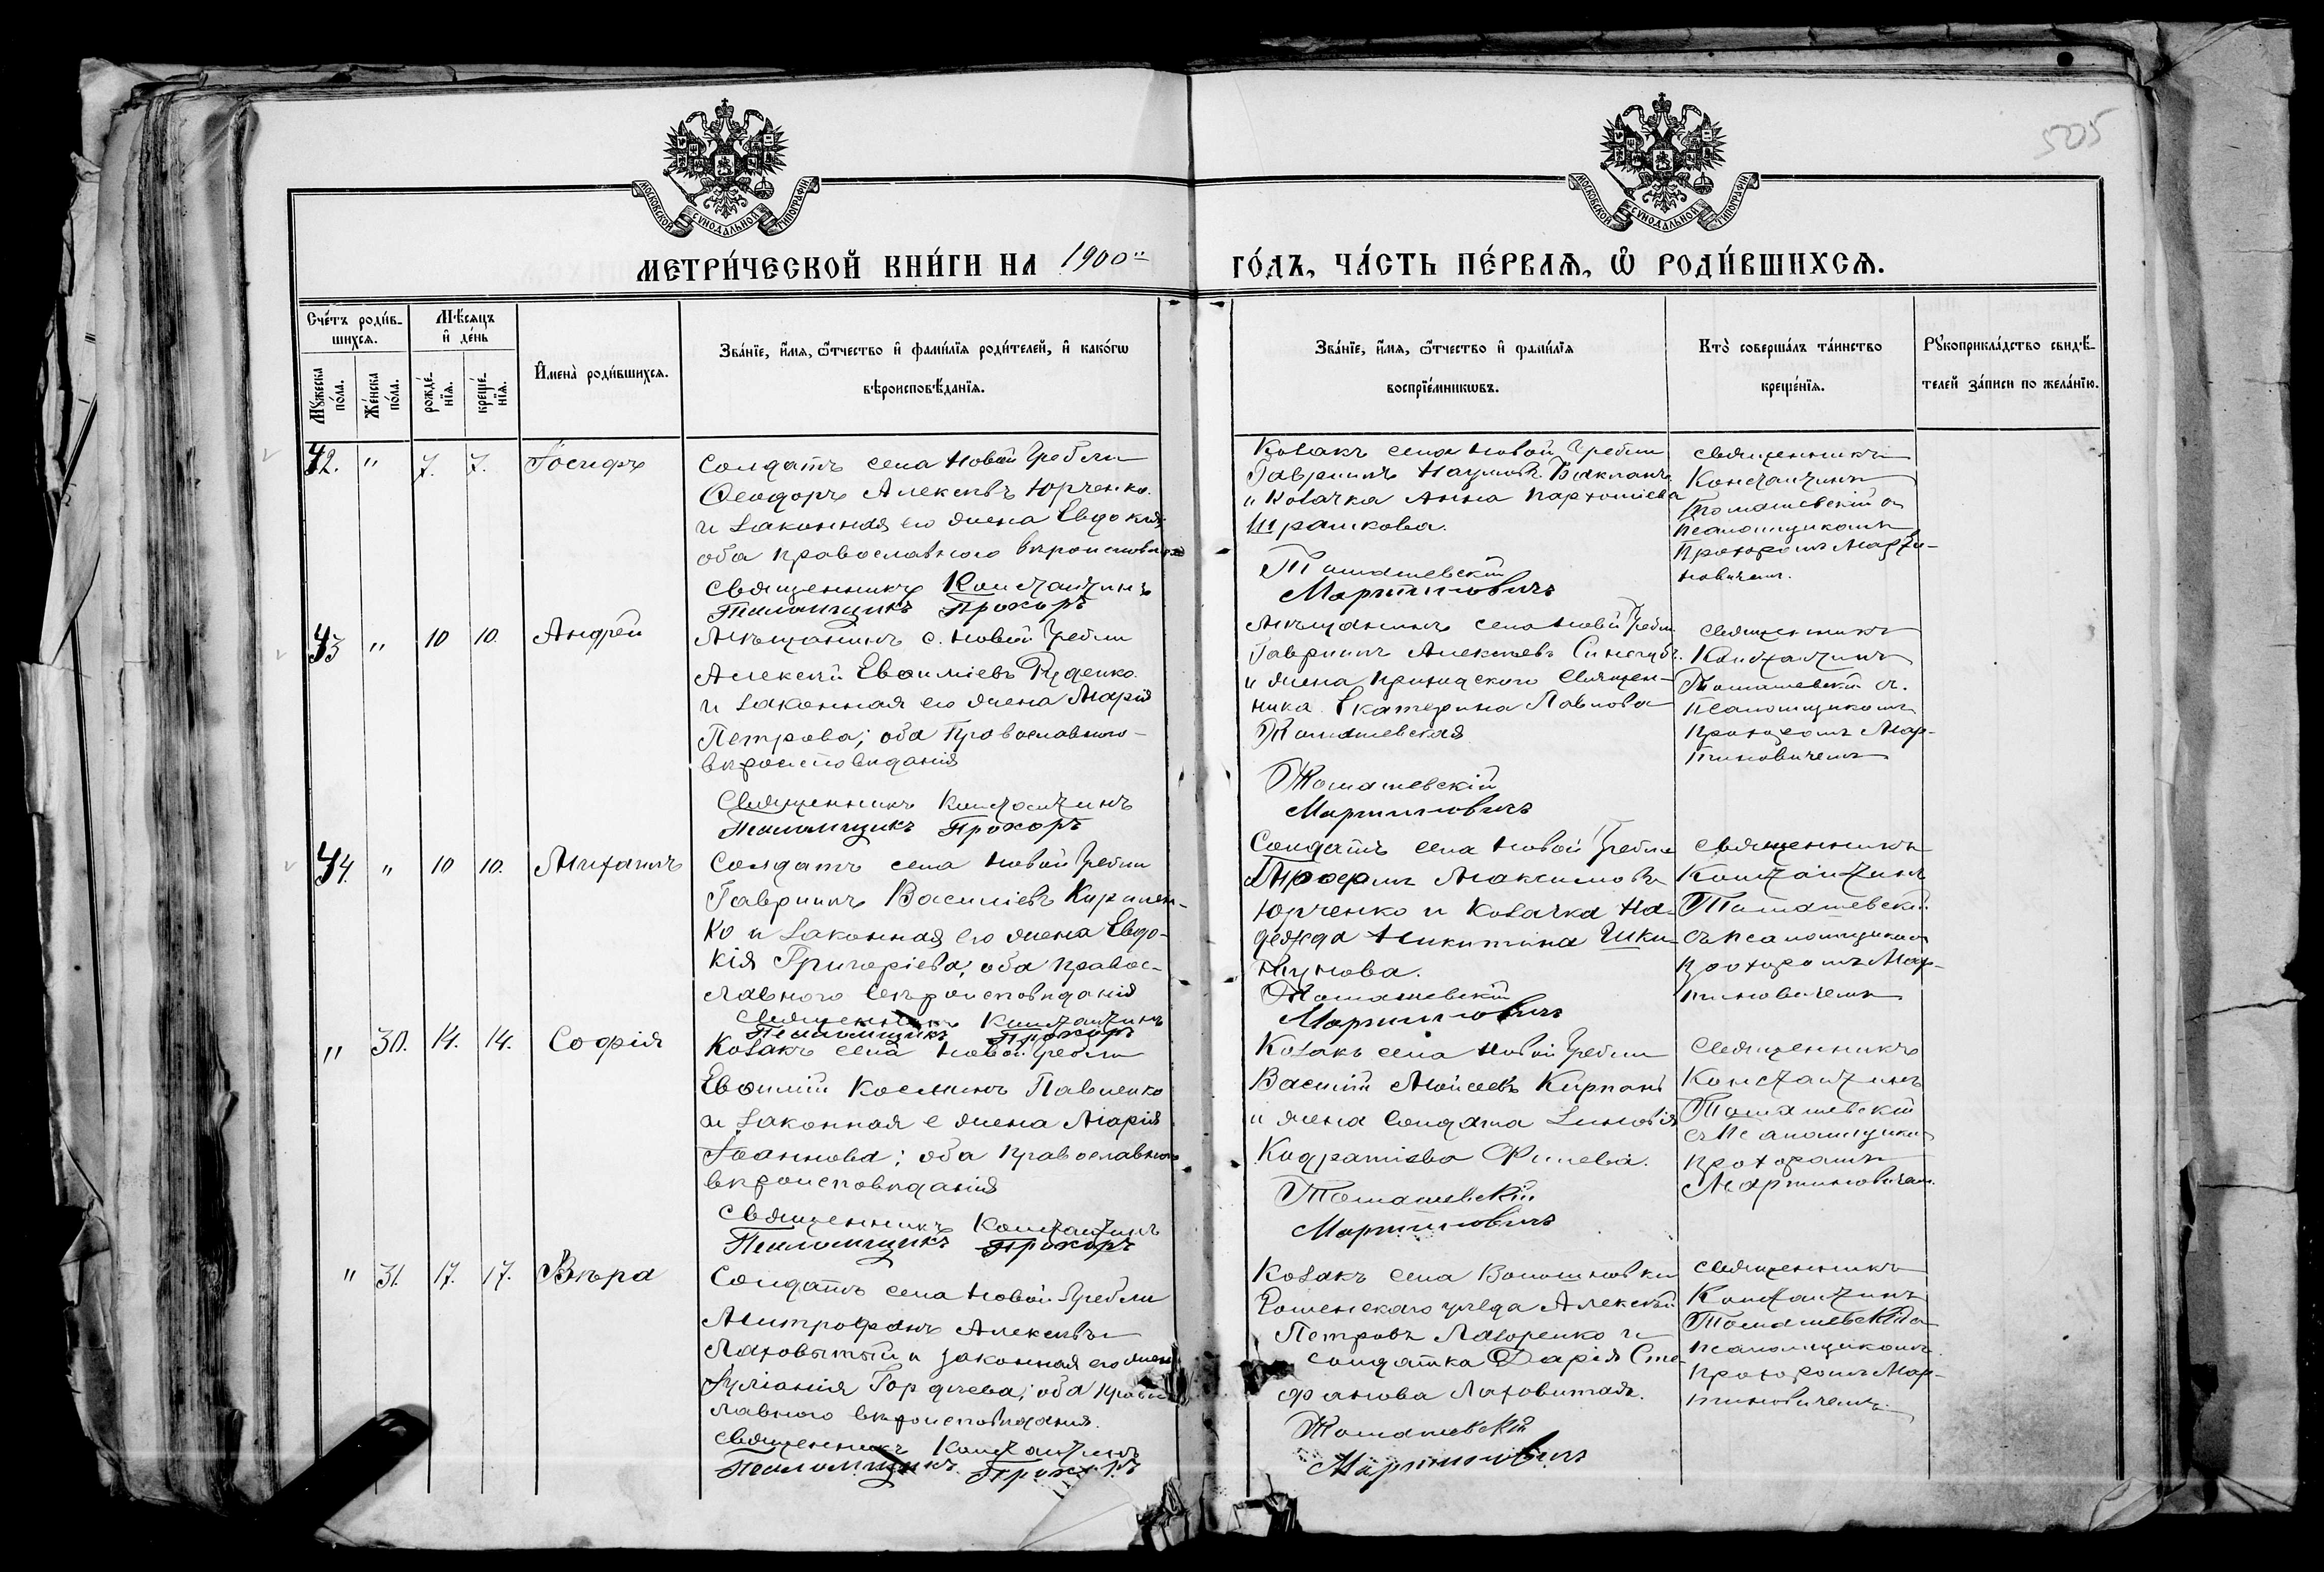 505
МОСКОВСКОЙ СѴНОДАЛЬНОЙ ТИПОГРАФІИ
МОСКОВСКОЙ СѴНОДАЛЬНОЙ ТИПОГРАФІИ
МЕТРИ́ЧЕСКОЙ КНИ́ГИ НА 1900
ГО́ДЪ, ЧА́СТЬ ПЕ́РВАѦ, Ѡ РОДИ́ВШИХСѦ.
Сче́тъ роди́в-
шихсѧ.
Мѣ́сѧцъ
и де́нь
Мꙋ́жеска
по́ла.
Же́нска
по́ла.
рожде́-
нїѧ.
креще́-
нїѧ.
И҆мена̀ роди́вшихсѧ.
Зва́нїе, и҆́мѧ, ѻ҆́тчество и҆ фами́лїѧ роди́телей, и҆ како́гѡ
вѣроисповѣ́данїѧ.
Зва́нїе, и҆́мѧ, ѻ҆́тчество и҆ фами́лїѧ
воспрїе́мникѡвъ.
Кто̀ соверша́лъ та́инство
креще́нїѧ.
Рꙋкоприкла́дство свидѣ́-
телей за́писи по жела́нїю.
42. " 7. 7. Іосифъ
Солдатъ села Новой Гребли
Ѳеодоръ Алексѣевъ Юрченко
и законная его жена Евдокія
оба православного
Священникъ Константинъ
Псаломщикъ Прохоръ
Козакъ села Новой Гребли
Гавріилъ Наумовъ
и козачка Анна
Томашевскій
Мартиновичъ
Священникъ
Константинъ
Томашевскій съ
псаломщикомъ
Прохоромъ Марти-
новичемъ.
43 " 10 10. Андрей
Мѣщанинъ с. Новой Гребли
Алексѣй Евѳиміевъ Руденко
и законная его жена Марія
Петрова; оба Православного
вѣроисповѣданія
Священникъ Константинъ
Псаломщикъ Прохоръ
Мѣщанинъ села Новой Гребли
Гавріилъ Алексѣевъ
и жена приходского священ-
ника Екатерина Павлова
Томашевская
Томашевскій
Мартиновичъ
Священникъ
Константинъ
Томашевскій съ
псаломщикомъ
Прохоромъ Мар-
тиновичемъ
44. " 10 10. Михаилъ
Солдатъ села Новой Гребли
Гавріилъ Василіевъ Кирилен-
ко и законная его жена Евдо-
кія Григоріева, оба правос-
лавного вѣроисповѣданія
Священникъ Константинъ
Псаломщикъ Прохоръ
Солдатъ села Новой Гребли
Максимовъ
Юрченко и козачка На-
дежда Никитина
Томашевскій
Мартиновичъ
Священникъ
Константинъ
Томашевскій
съ псаломщикомъ
Прохоромъ Мар-
тиновичемъ
" 30. 14. 14. Софія
Козакъ села Новой Гребли
Евѳимій Косминъ Павленко
и законная е жена Марія
Іоаннова; оба православного
вѣроисповѣданія
Священникъ Константинъ
Псаломщикъ Прохоръ
Козакъ села Новой Гребли
Василій Моисеевъ
и жена солдата Зиновія
Томашевскій
Мартиновичъ
Священникъ
Константинъ
Томашевскій
съ псаломщикомъ
Прохоромъ
Мартиновичемъ.
" 31. 17. 17. Вѣра
Солдатъ села Новой Гребли
Митрофанъ Алексѣевъ
Лаховитый и законная его жена
Іуліанія Гордѣева; оба правос
лавного вѣроисповѣданія.
Священникъ Константинъ
Псаломщикъ Прохоръ
Козакъ села Волошновки
Роменскаго уѣзда Алексѣй
Петровъ Лазоренко и
солдатка Дарія Сте-
фанова Лаховитая.
Томашевскій
Мартиновичъ
Священникъ
Константинъ
Томашевскій съ
псаломщикомъ
Прохоромъ Мар-
тиновичемъ